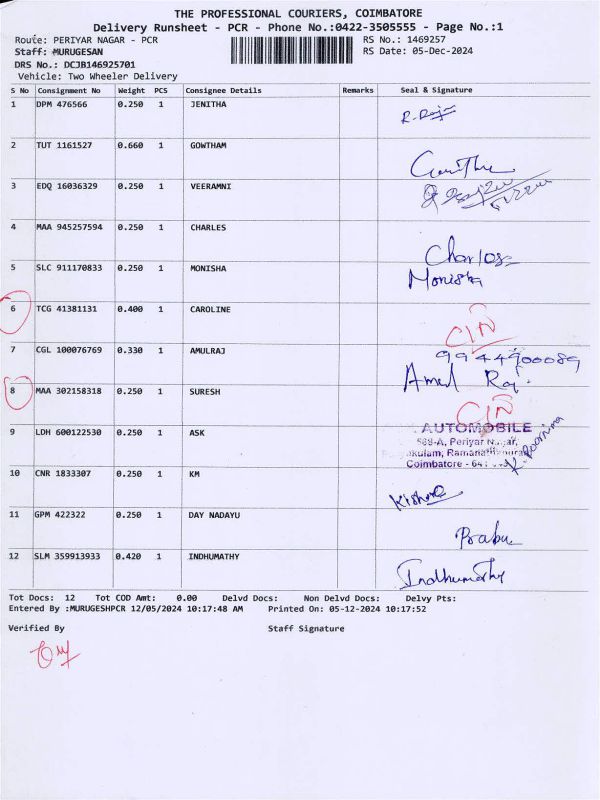 THE PROFESSIONAL COURIERS, COIMBATORE
Delivery Runsheet - PCR - Phone No.:0422-3505555 - Page No.:1
Route: PERIYAR NAGAR - PCR RS No.: 1469257
Staff: MURUGESAN RS Date: 05-Dec-2024
DRS No.: DCJB146925701
Vehicle: Two Wheeler Delivery
S No Consignment No Weight PCS Consignee Details Remarks Seal & Signature
1 DPM 476566 0.250 1 JENITHA
R. Raja
2 TUT 1161527 0.660 1 GOWTHAM
3 EDQ 16036329 0.250 1 VEERAMNI
4 MAA 945257594 0.250 1 CHARLES
Charles
5 SLC 911170833 0.250 1 MONISHA
Monisha
6 TCG 41381131 0.400 1 CAROLINE
CIN
7 CGL 100076769 0.330 1 AMULRAJ
9944900089
Amul Raj.
8 MAA 302158318 0.250 1 SURESH
CIN
9 LDH 600122530 0.250 1 ASK
AUTOMOBILE
568-A, Periyar Nagar,
Ramanathapuram
Coimbatore - 641
K. Poornima
10 CNR 1833307 0.250 1 KM
Kishore
11 GPM 422322 0.250 1 DAY NADAYU
Prabu
12 SLM 359913933 0.420 1 INDHUMATHY
Indhumathy
Tot Docs: 12 Tot COD Amt: 0.00 Delvd Docs: Non Delvd Docs: Delvy Pts:
Entered By :MURUGESHPCR 12/05/2024 10:17:48 AM Printed On: 05-12-2024 10:17:52
Verified By Staff Signature